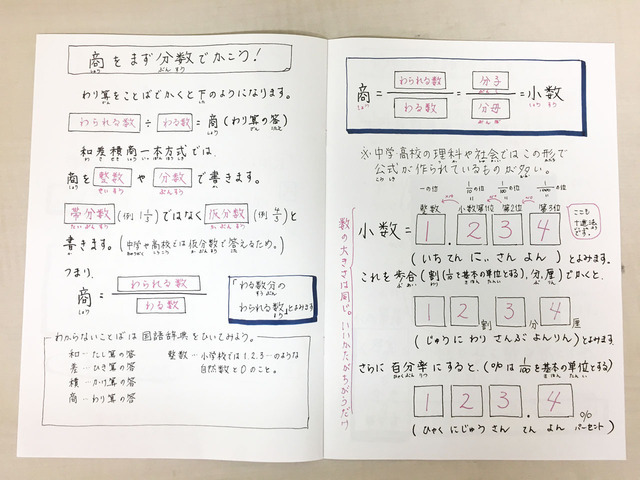 商をまず分数でかこう!
しょう ぶんすう
わり算をことばでかくと下のようになります。
わられる数 ÷ わる数 = 商(わり算の答)
和差積商一本方式では、
商を整数や分数で書きます。
しょう せいすう ぶんすう
帯分数(例1½)ではなく仮分数(例
たいぶんすう かぶんすう
書きます。(中学や高校では仮分数で答えるため。)
つまり、
商 = わられる数
わる数
「わる数分の
わられる数」とよみます
わからないことばは国語辞典をひいてみよう。
和―たし算の答
差―ひき算の答
積―かけ算の答
商―わり算の答
整数―小学校では1.2.3…のような
自然数と0のこと。
商 = わられる数 = 分子 = 小数
わる数 分母
※中学高校の理科や社会ではこの形で
公式が作られているものが多い。
一の位 1/10の位 1/100の位 1/1000の位
整数 小数第1位 第2位 第3位
小数 = 1 . 2 3 4
ここも
十進法
です。
(いちてんにいさんよん)とよみます。
これを歩合(割(1/10で基本の単位とする),分,厘)でかくと、
1 2割 3分 4厘
(じゅうにわりさんぶよんりん)とよみます。
さらに百分率にすると、(%は1/100を基本の単位とする)
1 2 3 . 4 %
(ひゃくにじゅうさんてんよんパーセント)
数の大きさは同じ。いいかたがちがうだけ